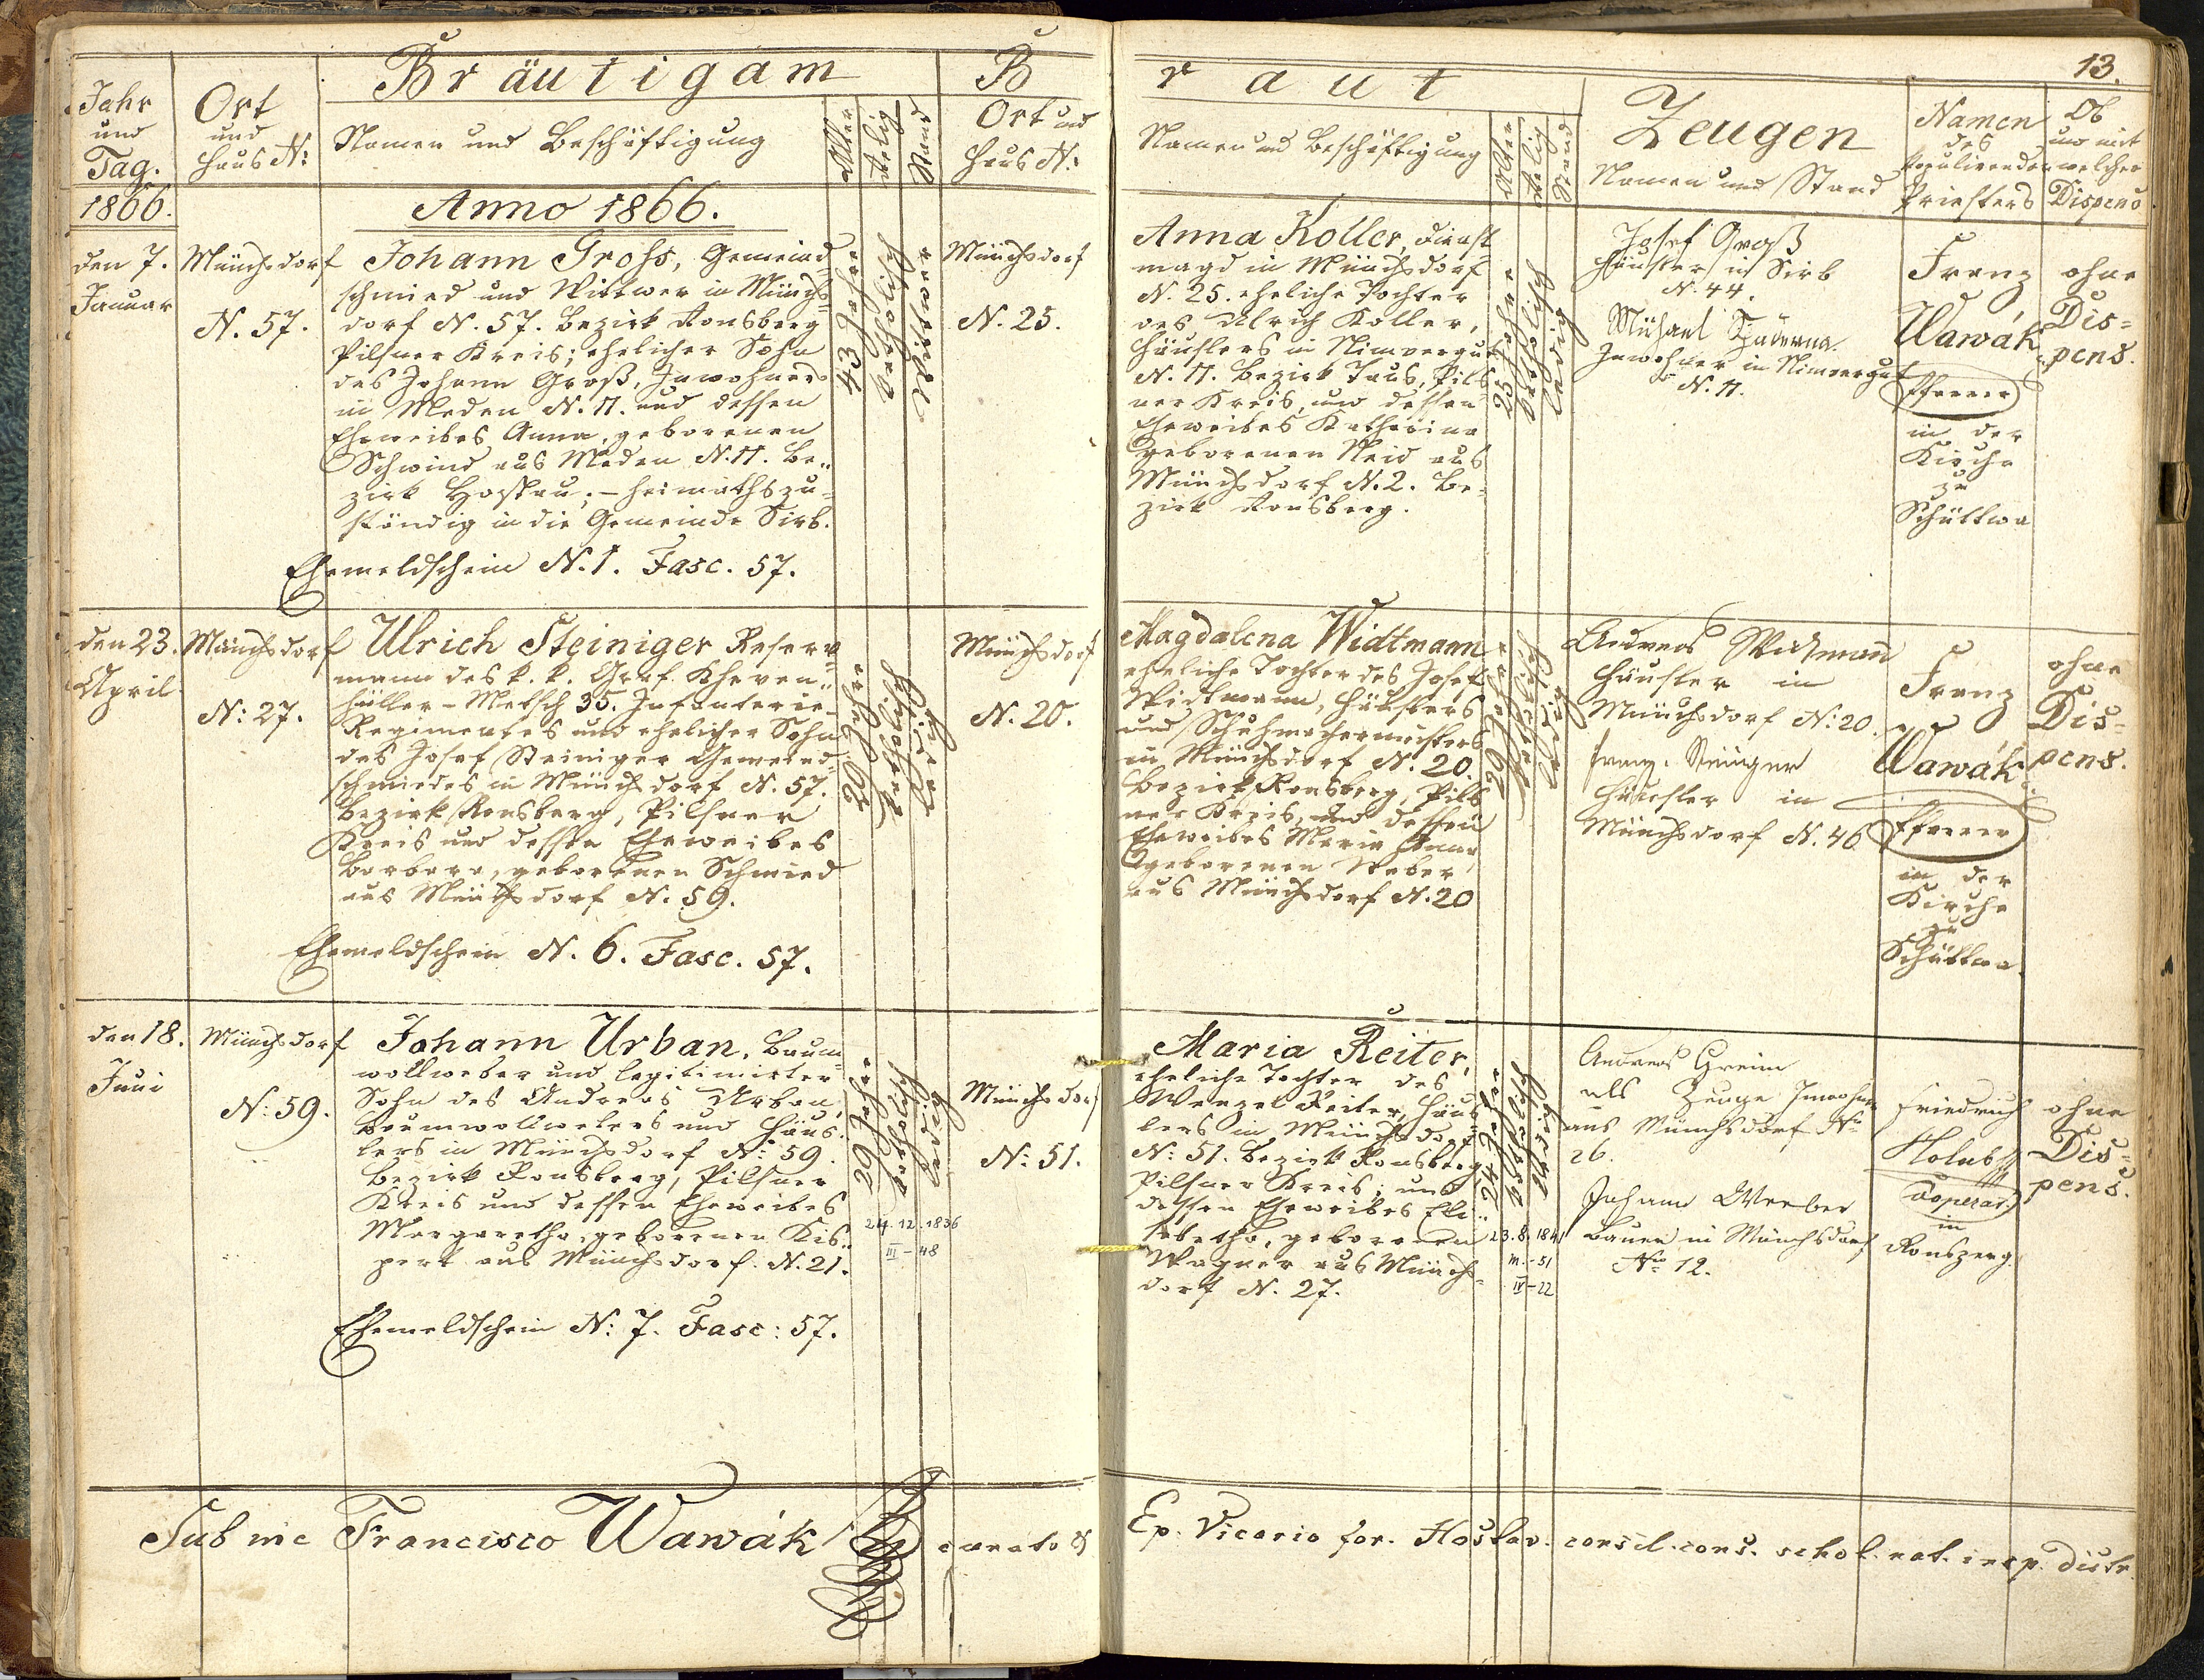 13.
Bräutigam
Braut
Jahr
und
Tag.
Ort
und
Haus N:
Namen und Beschäftigung
Alter
Relig
Stand
Ort und
Haus N:
Namen und Beschäftigung
Alter
Relig
Stand
Zeugen
Namen und Stand
Namen
des
kopulirenden
Priesters
Ob
und mit
welcher
Dispens
1866.
Anno 1866.
den 7.
Januar
Münchsdorf
N. 57.
Johann Grohs, Gemeind-
schmied und Wittwer in Münchs-
dorf N. 57. Bezirk Ronsberg
Pilsner Kreis; ehelicher Sohn
des Johann Groß, Inwohners
in Meden N. 11. und dessen
Eheweibes Anna, geborenen
Schwind aus Meden N. 11. Be-
zirk Hostau; – heimathszu-
ständig in die Gemeinde Sirb.
Ehemeldschein N. 1. Fasc. 57.
43 Jahre
katholisch
Wittwer
Münchsdorf
N. 25.
Anna Koller, Dienst-
magd in Münchsdorf
N. 25. eheliche Tochter
des Ulrich Koller,
Häuslers in Nimvorgut
N. 11. Bezirk Taus, Pils-
ner Kreis, und dessen
Eheweibes Katharina
geborenen Neid aus
Münchsdorf N. 2. Be-
zirk Ronsberg.
25 Jahre
katholisch
ledig
Josef Groß
Häusler in Sirb
N. 44.
Michael
Inwohner in Nimvorgut
N. 11.
Franz
Wawák
Pfarrer
in der
Kirche
zu
Schüttwa
ohne
Dis-
pens.
den 23.
April
Münchsdorf
N: 27.
Ulrich Steiniger Reserv-
mann des k. k. Graf Kheven-
hüller-Metsch 35. Infanterie-
Regimentes und ehelicher Sohn
des Josef Steiniger Gemeind-
schmiedes in Münchsdorf N. 57.
Bezirk Ronsberg, Pilsner
Kreis und dessen Eheweibes
Barbara, geborenen Schmied
aus Münchsdorf N. 59.
Ehemeldschein N. 6. Fasc. 57.
20 Jahre
katholisch
ledig
Münchsdorf
N. 20.
Magdalena Widtmann
eheliche Tochter des Josef
Widtmann, Häuslers
und Schuhmachermeisters
in Münchsdorf N. 20.
Bezirk Ronsberg, Pils-
ner Kreis, und dessen
Eheweibes Maria Anna
geborenen Weber
aus Münchsdorf N. 20
29 Jahre
katholisch
ledig
Andreas Widtmann
Häusler in
Münchsdorf N: 20.
Franz Steiniger
Häusler in
Münchsdorf N. 46
Franz
Wawák
Pfarrer
in der
Kirche
zu
Schüttwa.
ohne
Dis-
pens.
den 18.
Juni
Münchsdorf
N: 59.
Johann Urban, Baum-
wollweber und legitimirter
Sohn des Andreas Urban,
Baumwollwebers und Häus-
lers in Münchsdorf N: 59.
Bezirk Ronsberg, Pilsner
Kreis und dessen Eheweibes
Margaretha, geborenen Kis-
pert aus Münchsdorf N. 21.
Ehemeldschein N: 7. Fasc: 57.
29 Jahre
katholisch
ledig
24.12.1836
III-48
Münchsdorf
N: 51.
Maria Reiter,
eheliche Tochter des
Wenzel Reiter, Häus-
lers in Münchsdorf
N: 51. Bezirk Ronsberg,
Pilsner Kreis; und
dessen Eheweibes Eli-
sabetha, geborenen
Wagner aus Münchs-
dorf N. 27.
24 Jahre
katholisch
ledig
23.8.1841
m.-51
IV-22
Andreas Greim
als Zeuge Inwohner
aus Münchsdorf No
26.
Johann Weeber
Bauer in Münchsdorf
No 12.
Friedrich
Holub
Cooperator
in
Ronsperg.
ohne
Dis-
pens.
Sub me Francisco Wawák curato &
Ep. Vicario for. Hostav. consil. cons. schol. nat. insp. distr.